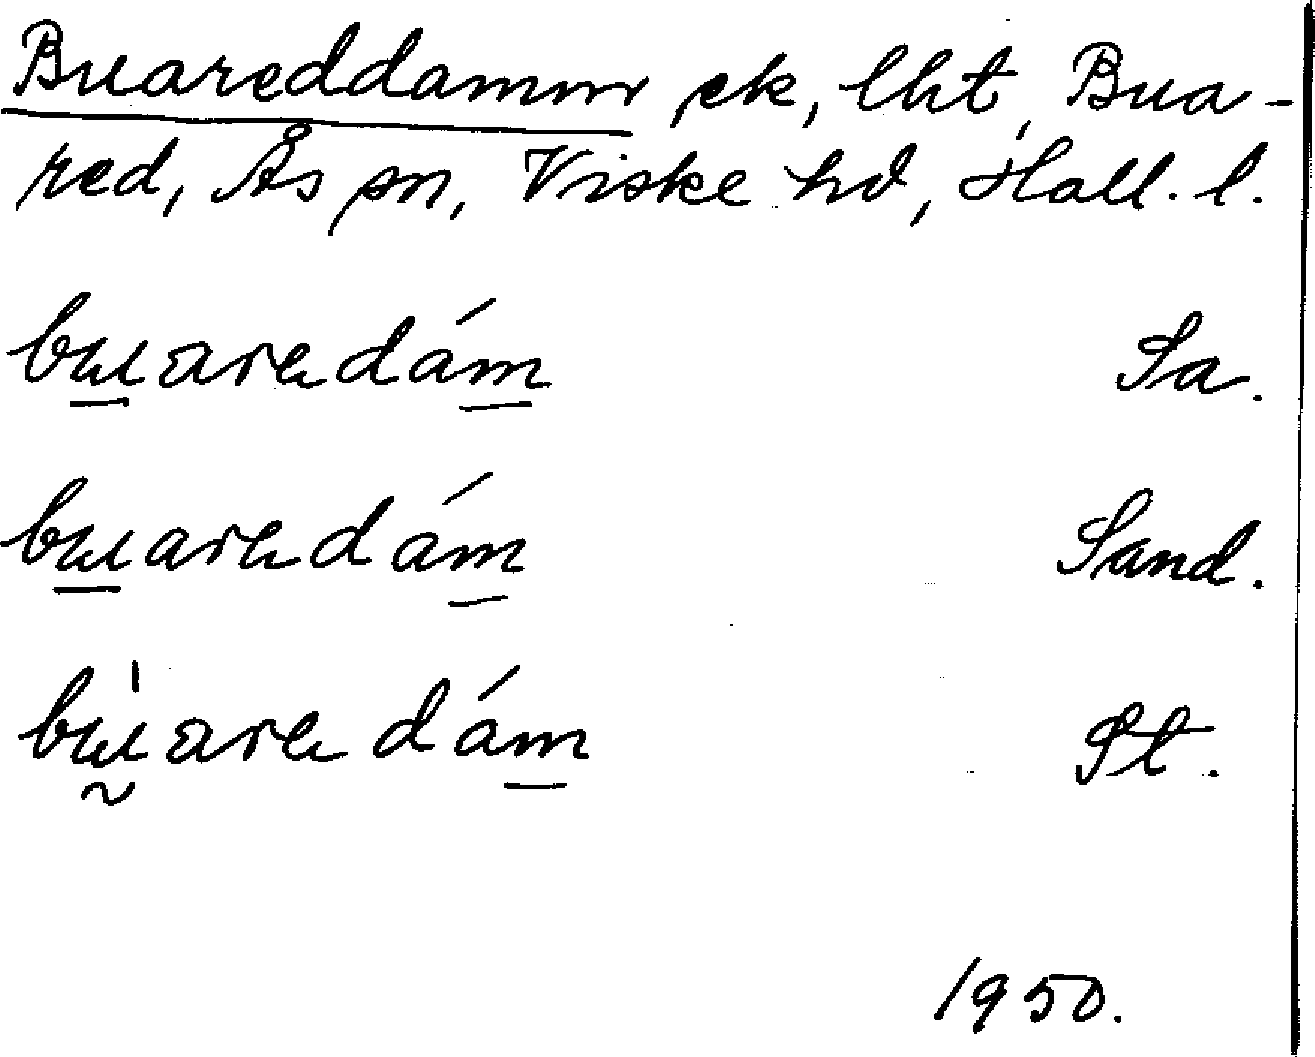 Buareddamm, ek, lht, Bua-
red, Ås sn, Viske hd, Hall. l.
bu̲aredám̲ Sa.
bu̲aredám̲ Sand.
bṵ̀aredám̲ St.
1950.